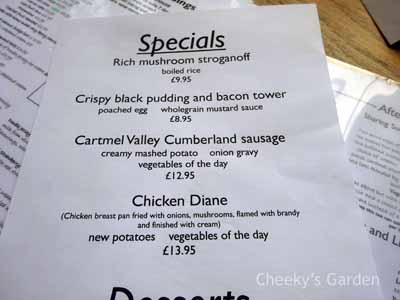 Specials
Rich mushroom stroganoff
boiled rice
£9.95
Crispy black pudding and bacon tower
poached egg wholegrain mustard sauce
£8.95
Cartmel Valley Cumberland sausage
creamy mashed potato onion gravy
vegetables of the day
£12.95
Chicken Diane
(Chicken breast pan fried with onions, mushrooms, flamed with brandy
and finished with cream)
new potatoes vegetables of the day
£13.95
Desserts
Cheeky's Garden